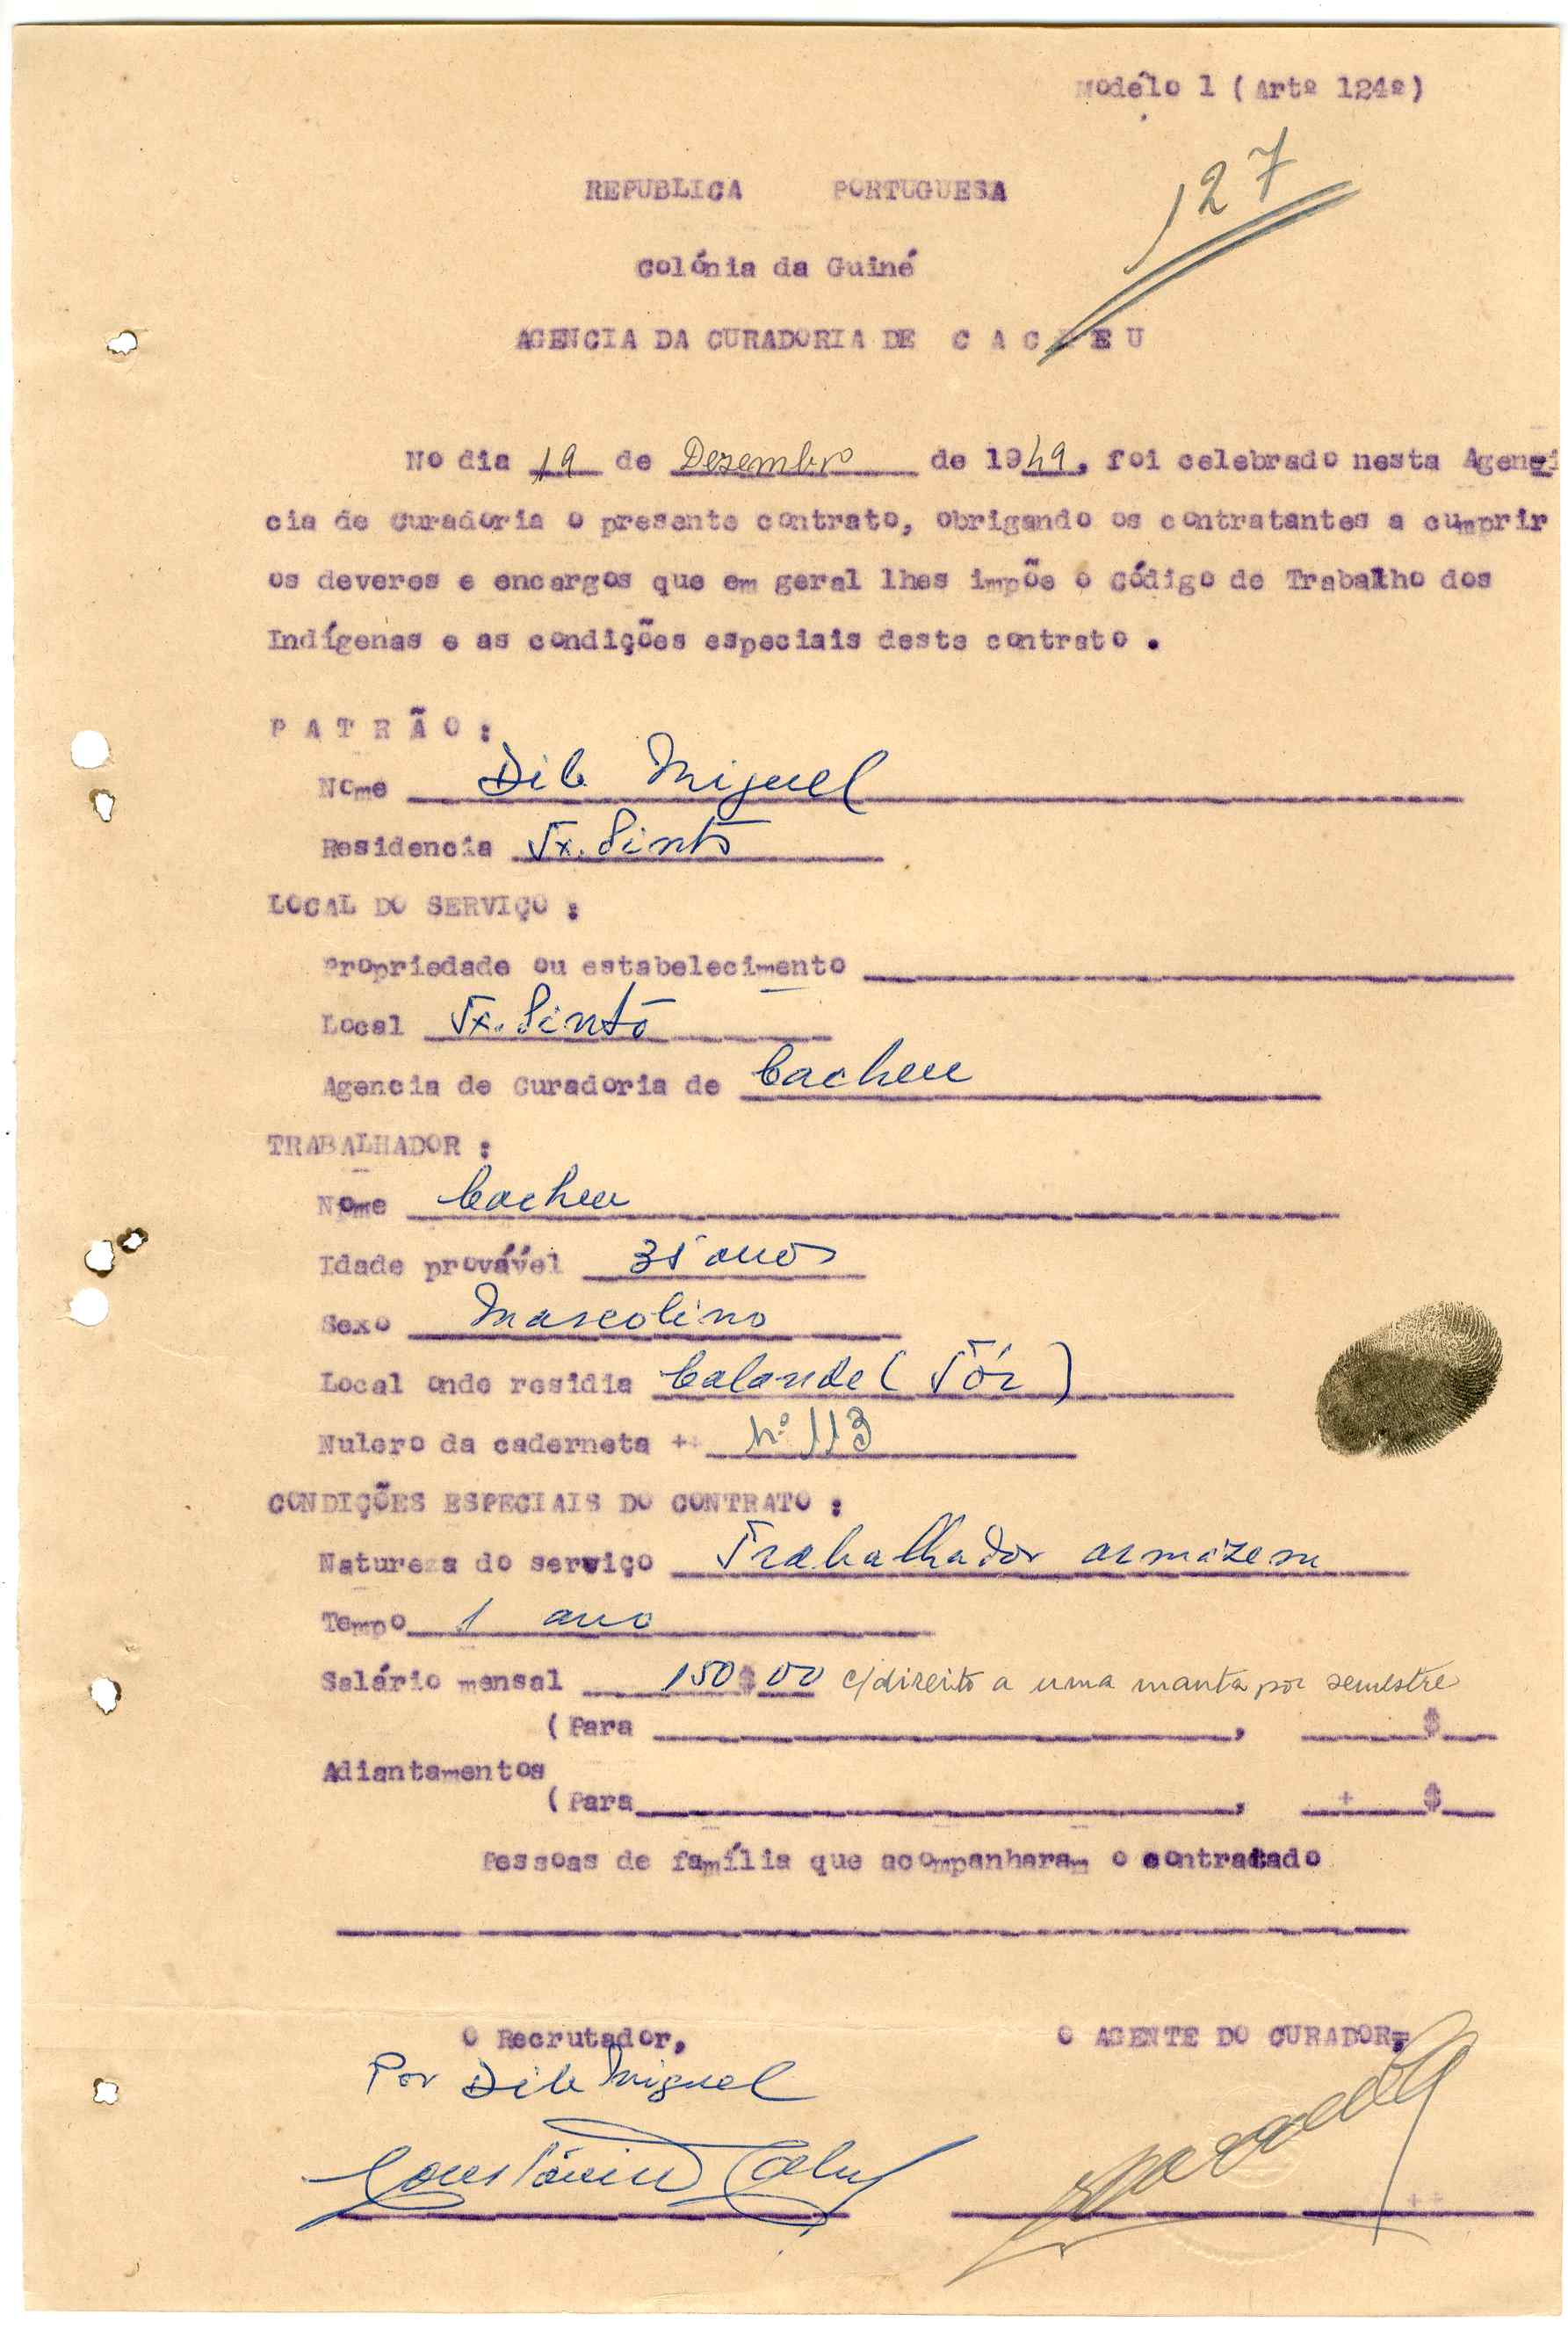 Modêlo 1 ( Artº 124º)
127
REPUBLICA PORTUGUESA
Colónia da Guiné
AGENCIA DA CURADORIA DE C A C H E U
No dia 19 de Dezembro de 1949, foi celebrado nesta Agenci
cia de Curadoria o presente contrato, obrigando os contratantes a cumprir
os deveres e encargos que em geral lhes impõe o Código de Trabalho dos
Indígenas e as condições especiais deste contrato .
P A T R Ã O :
Nome Dib Miguel
Residencia Tx. Pinto
LOCAL DO SERVIÇO :
Propriedade ou estabelecimento
Local Tx. Pinto
Agencia de Curadoria de Cacheu
TRABALHADOR :
Nome Cacheu
Idade provável 35 anos
Sexo Mascolino
Local onde residia Calande ( Tór )
Nulero da caderneta nº 113
CONDIÇÕES ESPECIAIS DO CONTRATO :
Natureza do serviço Trabalhador armázem
Tempo 1 ano
Salário mensal 150$00 c/direito a uma manta por semestre
(Para , $
Adiantamentos
(Para , $
Pessoas de família que acompanharam o contratado
O Recrutador, O AGENTE DO CURADOR,
Por Dib Miguel